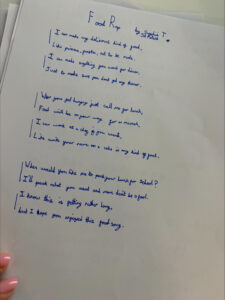 Food Rap by
I can make any delicious kind of food,
Like pizza, pasta, not to be rude.
I can make anything you want for dinner,
Just to make sure you don't get any thinner.
When you get hungry just call me for lunch,
Food will be on your way for a munch.
I can work as a chef if you want,
Like write your name on a cake in any kind of font.
When would you like me to pack your lunch for school?
I'll pack what you need and more don't be a fool.
I know this is getting rather long,
but I hope you enjoyed this food song.